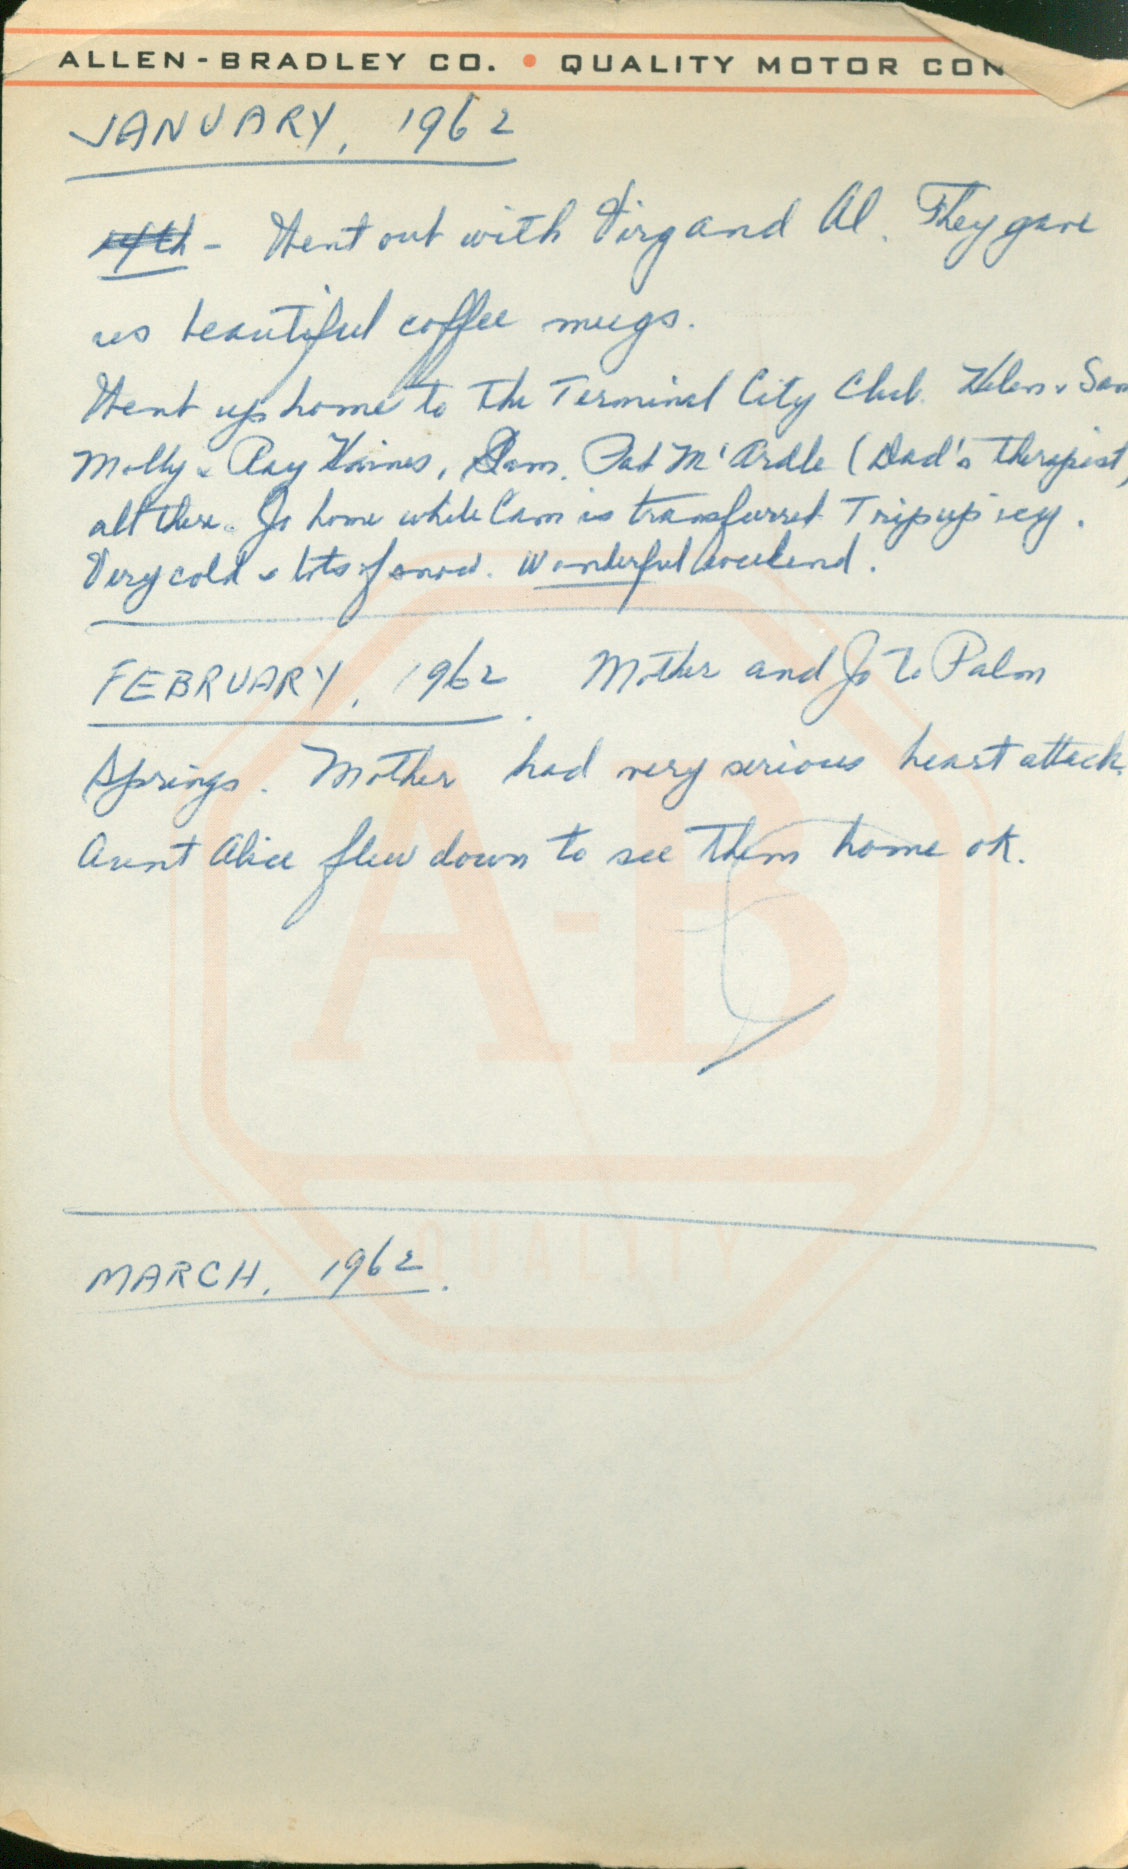 ALLEN-BRADLEY CO. • QUALITY MOTOR CON
JANUARY, 1962
14th - Went out with Virg and Al. They gave
us beautiful coffee mugs.
Went up home to the Terminal City Club. Helen & Sam
Molly & Ray Haines, Sam. Pat M'Ardle (Dad's therapist)
all there. Jo home while Cam is transferred Trip up icy.
Very cold & lots of snow. Wonderful weekend.
FEBRUARY, 1962. Mother and Jo to Palm
Springs. Mother had very serious heart attack.
Aunt Alice flew down to see them home ok.
A-B
QUALITY
MARCH, 1962.